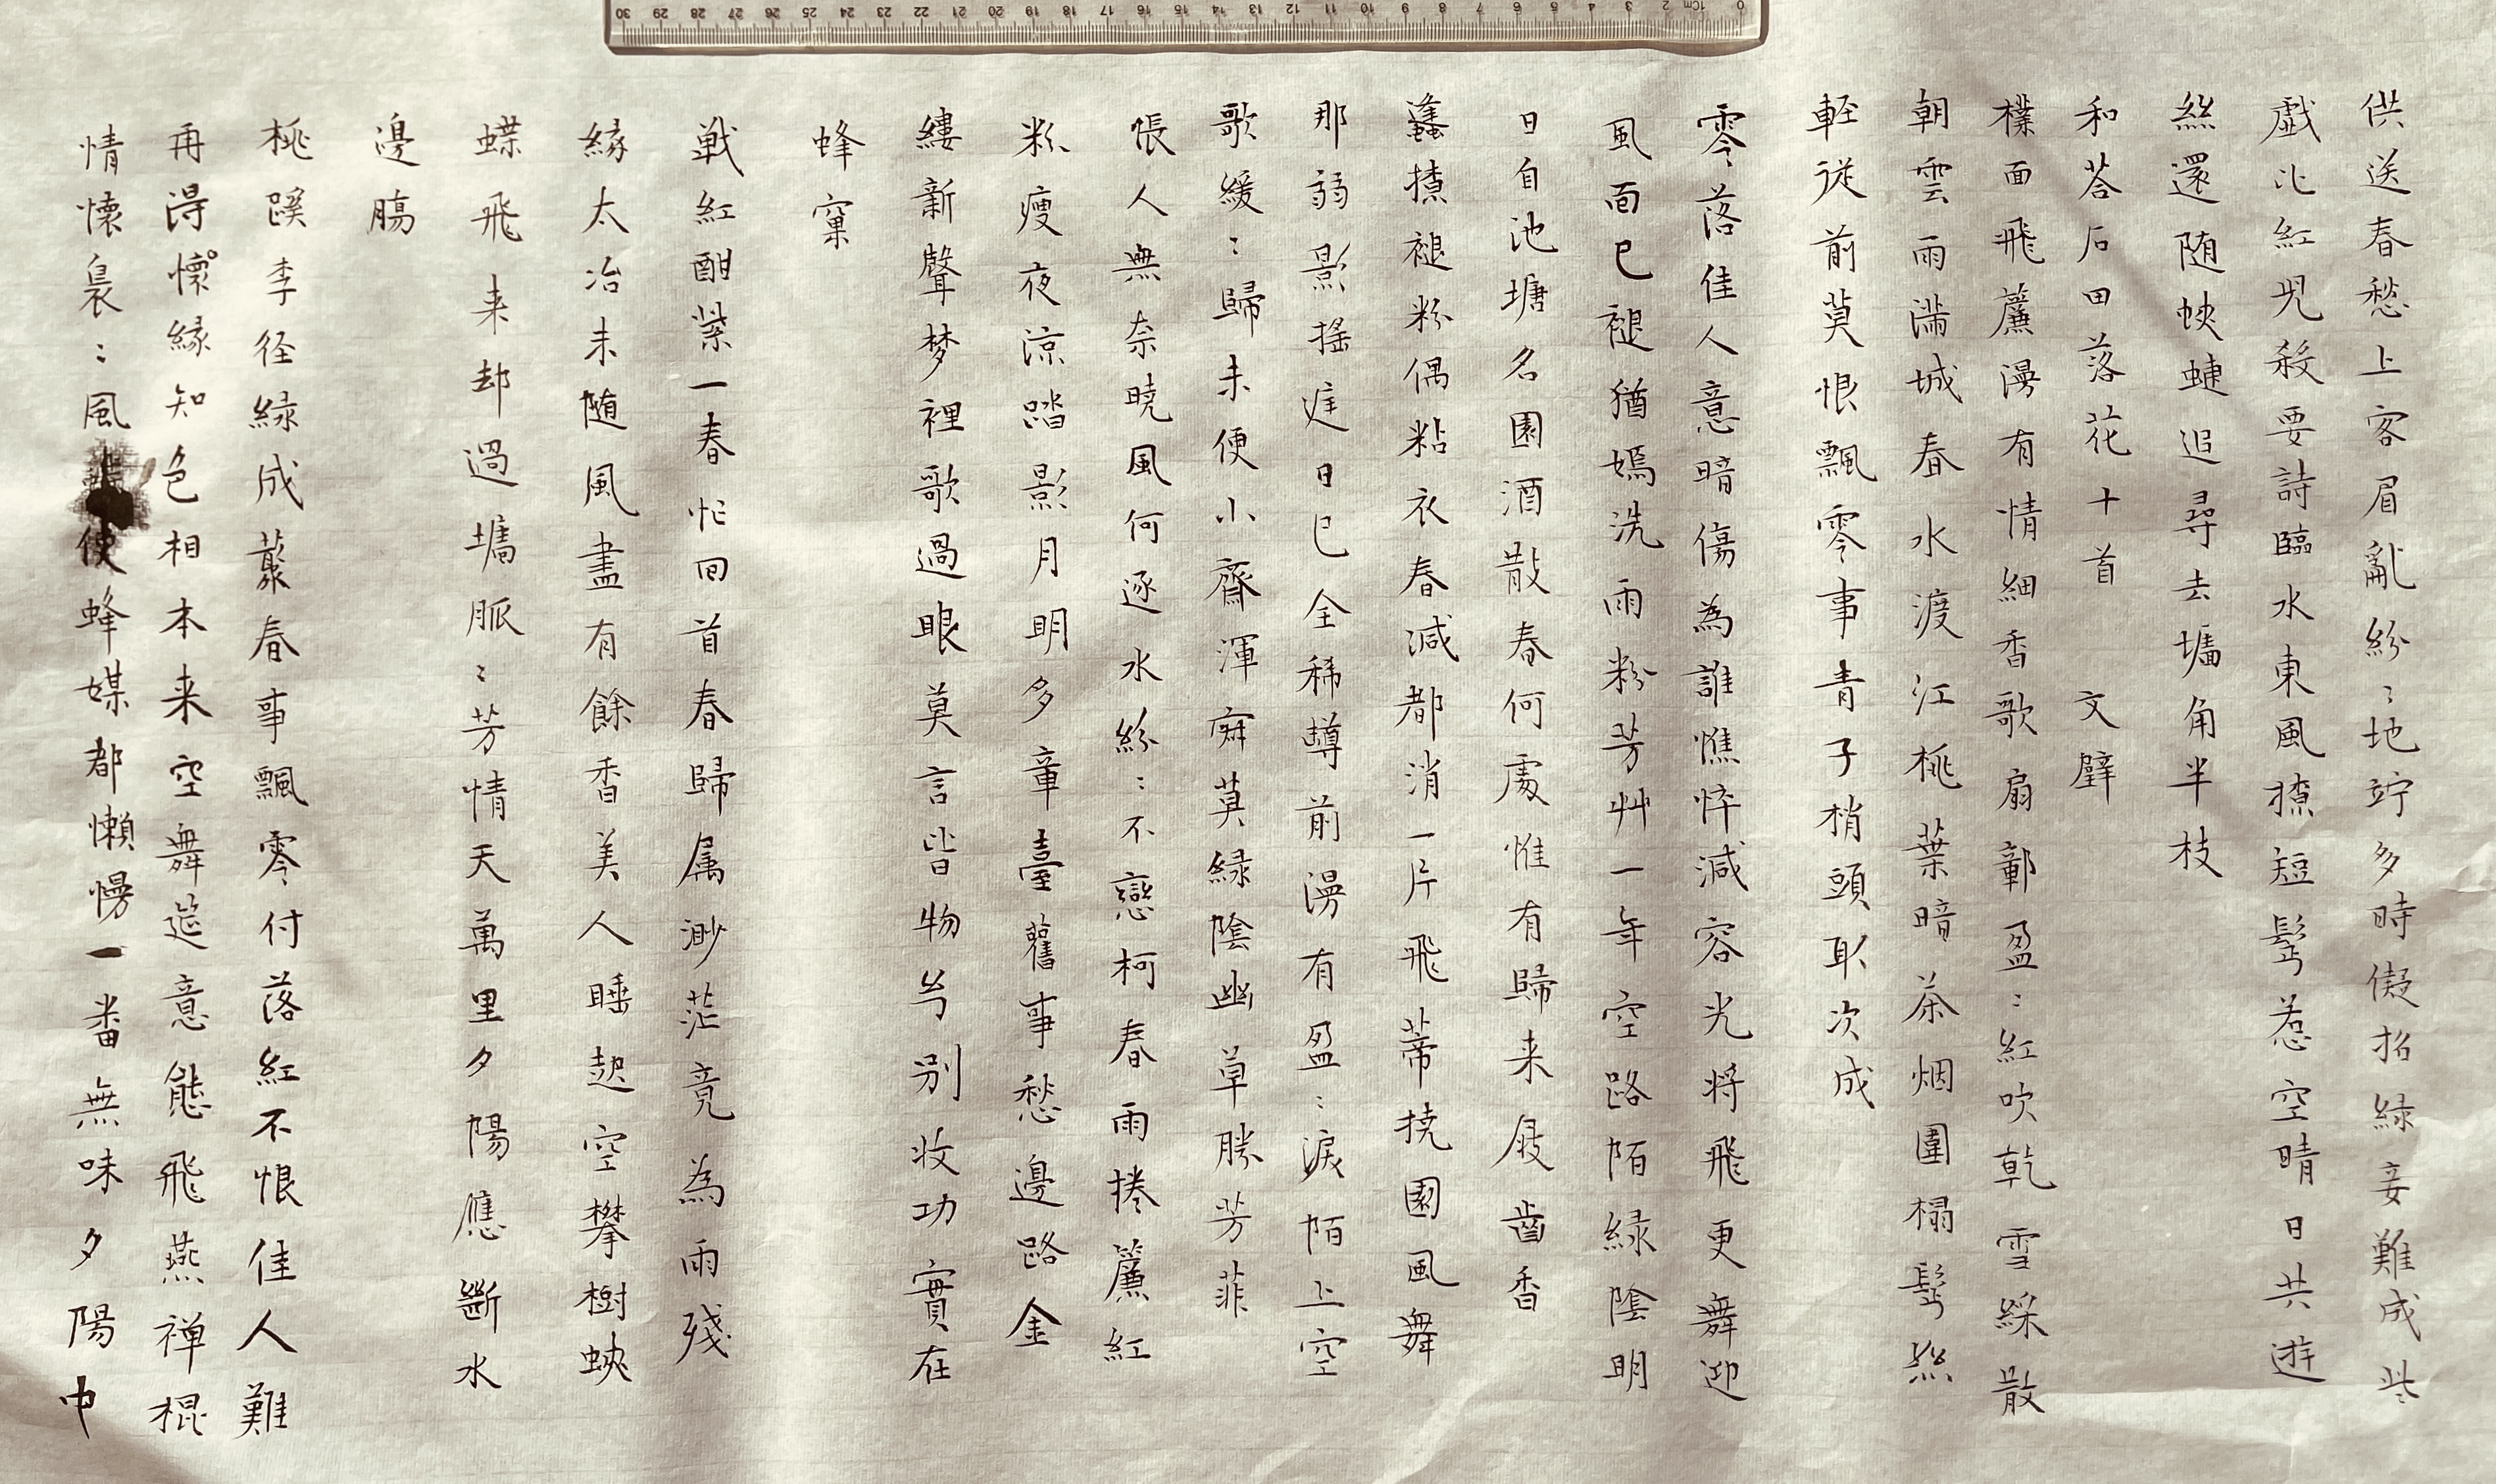 供送春愁上客眉亂紛〻地竚多時儗招綠妾難成些
戲比紅兒殺要詩臨水東風撩短髩惹空晴日共遊
絲還随蛺蜨追尋去墻角半枝
和荅石田落花十首 文壁
撲面飛簾漫有情細香歌扇鄣盈〻紅吹乾雪綵散
朝雲雨滿城春水渡江桃葉暗茶烟圍榻髩絲
輕從前莫恨飄零事青子梢頭取次成
零落佳人意暗傷為誰憔悴減容光将飛更舞迎
風面已褪猶嫣洗雨粉芳艸一年空路陌緑陰明
日自池塘名園酒散春何處惟有歸来屐齒香
蜂撩褪粉偶粘衣春減都消一片飛蒂撓園風舞
那弱影搖庭日已全稀罇前漫有盈〻淚陌上空
歌緩〻歸未便小齋渾寂莫緑陰幽草勝芳菲
悵人無奈曉風何逐水紛〻不戀柯春雨捲簾紅
粉瘦夜涼踏影月明多章臺舊事愁邊路金
縷新聲梦裡歌過眼莫言皆物兮别收功實在
蜂窠
戰紅酣紫一春忙囬首春歸属渺茫竟為雨殘
緣太冶未随風盡有餘香美人睡起空攀樹蛺
蝶飛来却過墻脈〻芳情天萬里夕陽應斷水
邊腸
桃蹊李径緑成叢春事飄零付落紅不恨佳人難
再得懷緣知色相本来空舞筵意態飛燕禅榥
情懷裊〻風使蜂媒都懶慢一番無味夕陽中
0 1cm 2 3 4 5 6 7 8 9 10 11 12 13 14 15 16 17 18 19 20 21 22 23 24 25 26 27 28 29 30